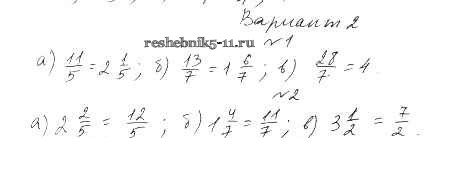 Вариант 2
reshebnik5-11.ru
№1
а) 11/5 = 2 1/5; б) 13/7 = 1 6/7; в) 28/7 = 4.
№2
а) 2 2/5 = 12/5; б) 1 4/7 = 11/7; в) 3 1/2 = 7/2.